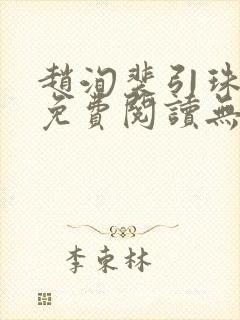 趙洵裴引珠
免費閱讀無
李東林